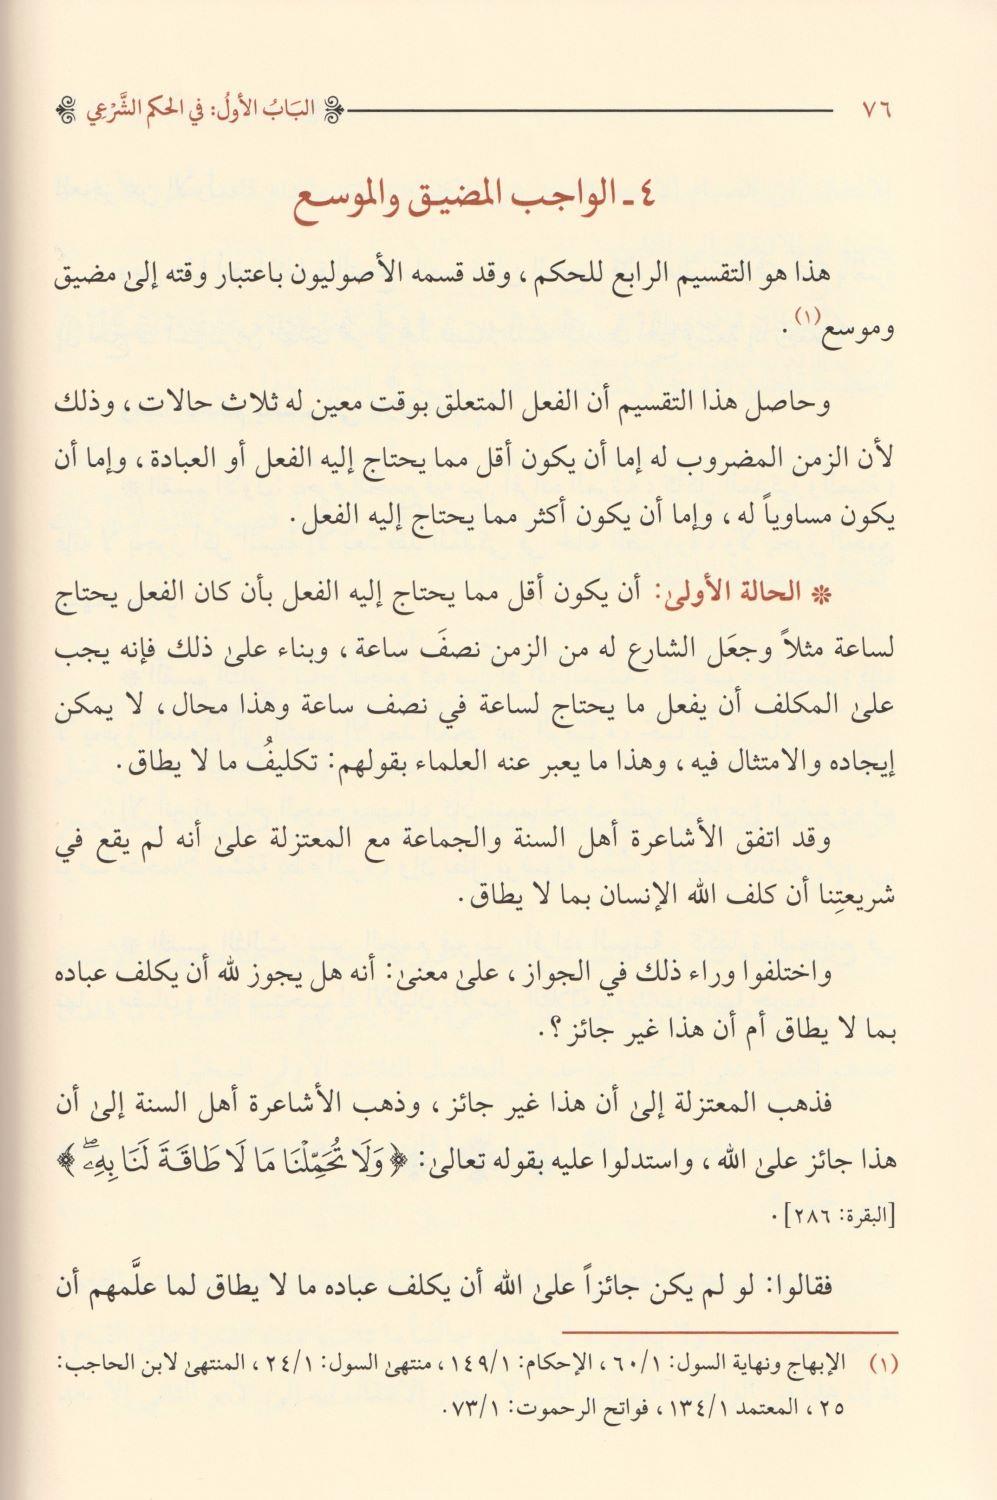 ٧٦ البَابُ الأولُ: في الحكم الشَّرْعِي
٤ ـ الواجب المضيق والموسع
هذا هو التقسيم الرابع للحكم، وقد قسمه الأصوليون باعتبار وقته إلىٰ مضيق
وموسع(١).
وحاصل هذا التقسيم أن الفعل المتعلق بوقت معين له ثلاث حالات، وذلك
لأن الزمن المضروب له إما أن يكون أقل مما يحتاج إليه الفعل أو العبادة، وإما أن
يكون مساوياً له، وإما أن يكون أكثر مما يحتاج إليه الفعل.
* الحالة الأولىٰ: أن يكون أقل مما يحتاج إليه الفعل بأن كان الفعل يحتاج
لساعة مثلاً وجعَل الشارع له من الزمن نصفَ ساعة، وبناء علىٰ ذلك فإنه يجب
علىٰ المكلف أن يفعل ما يحتاج لساعة في نصف ساعة وهذا محال، لا يمكن
إيجاده والامتثال فيه، وهذا ما يعبر عنه العلماء بقولهم: تكليفُ ما لا يطاق.
وقد اتفق الأشاعرة أهل السنة والجماعة مع المعتزلة علىٰ أنه لم يقع في
شريعتِنا أن كلف الله الإنسان بما لا يطاق.
واختلفوا وراء ذلك في الجواز، علىٰ معنىٰ: أنه هل يجوز لله أن يكلف عباده
بما لا يطاق أم أن هذا غير جائز؟.
فذهب المعتزلة إلىٰ أن هذا غير جائز، وذهب الأشاعرة أهل السنة إلىٰ أن
هذا جائز علىٰ الله، واستدلوا عليه بقوله تعالىٰ: ﴿وَلَا تُحَمِّلْنَا مَا لَا طَاقَةَ لَنَا بِهِۦۖ﴾
[البقرة: ٢٨٦].
فقالوا: لو لم يكن جائزاً علىٰ الله أن يكلف عباده ما لا يطاق لما علَّمهم أن
(١) الإبهاج ونهاية السول: ٦٠/١، الإحكام: ١٤٩/١، منتهىٰ السول: ٢٤/١، المنتهىٰ لابن الحاجب:
٢٥، المعتمد ١٣٤/١، فواتح الرحموت: ٧٣/١.